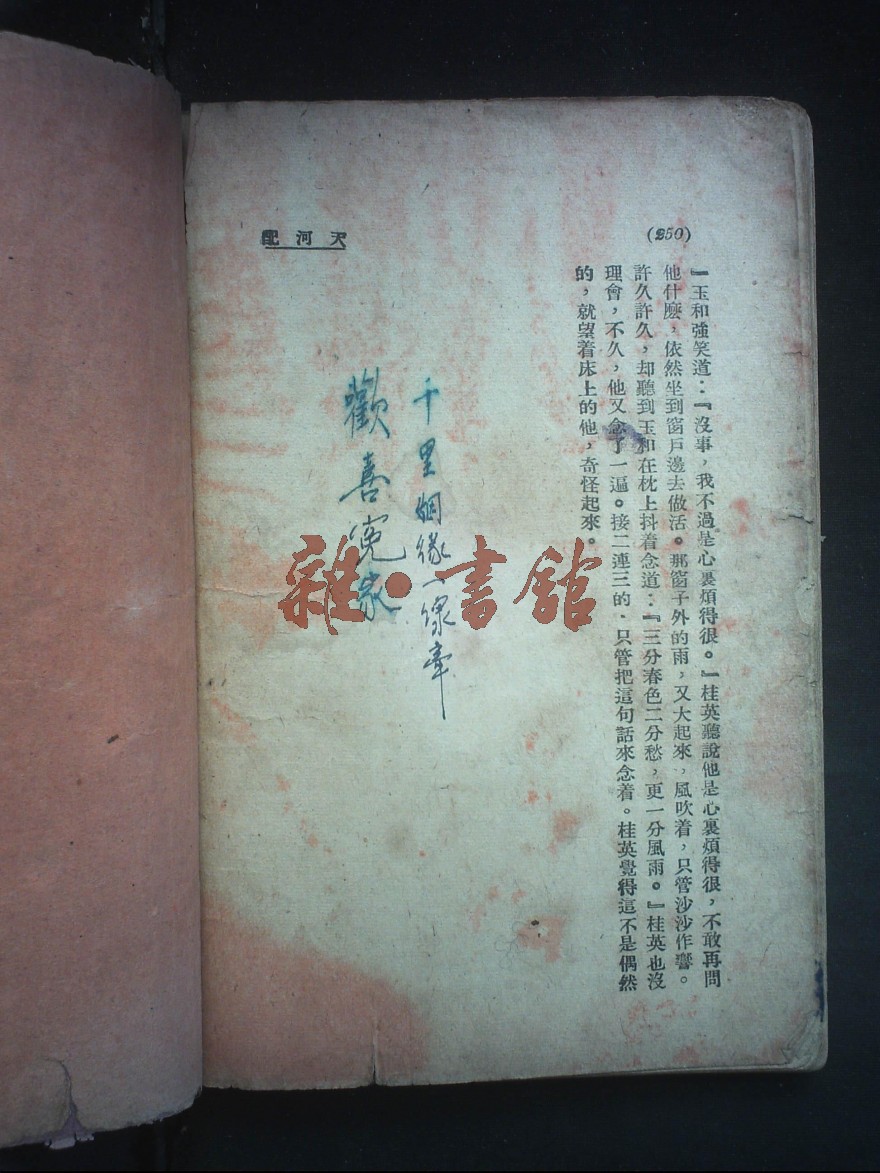 (250)
天河配
』玉和強笑道：『沒事，我不過是心裏煩得很。』桂英聽說他是心裏煩得很，不敢再問
他什麼，依然坐到窗戶邊去做活。那窗子外的雨，又大起來，風吹着，只管沙沙作響。
許久許久，却聽到玉和在枕上抖着念道：『三分春色二分愁，更一分風雨。』桂英也沒
理會，不久，他又念了一遍。接二連三的，只管把這句話來念着。桂英覺得這不是偶然
的，就望着床上的他，奇怪起來。
千里姻緣一線牽
歡喜冤家
雜·書館